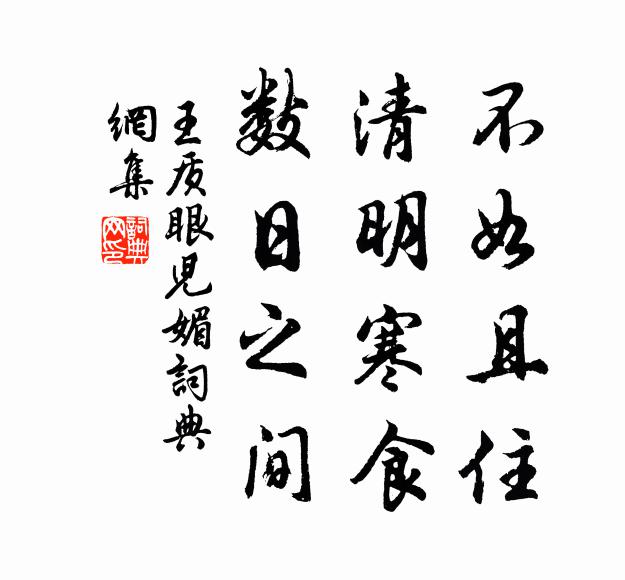 不如且住
清明寒食
数日之间
王质眼児媚詞典
網集
詞典
网印